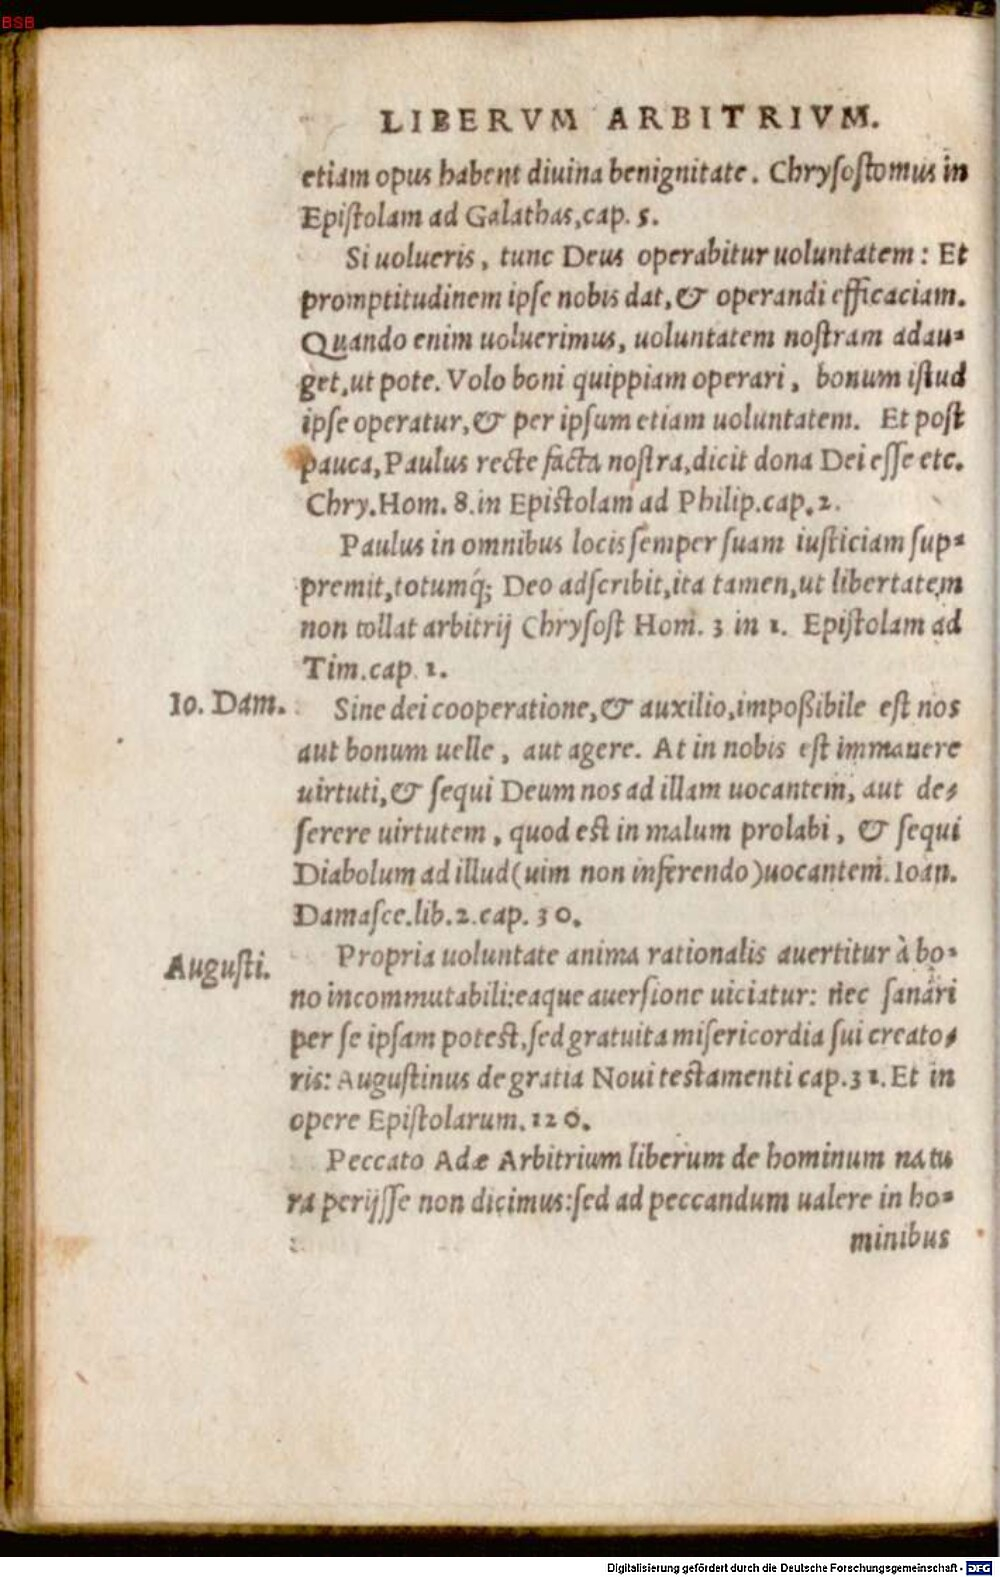 BSB
LIBERVM ARBITRIVM.
etiam opus habent diuina benignitate. Chrysostomus in
Epistolam ad Galathas, cap. 5.
Si uolueris, tunc Deus operabitur uoluntatem: Et
promptitudinem ipse nobis dat, & operandi efficaciam.
Quando enim uoluerimus, uoluntatem nostram adau-
get, ut pote. Volo boni quippiam operari, bonum istud
ipse operatur, & per ipsum etiam uoluntatem. Et post
pauca, Paulus recte facta nostra, dicit dona Dei esse etc.
Chry. Hom. 8. in Epistolam ad Philip. cap. 2.
Paulus in omnibus locis semper suam iusticiam sup-
premit, totumq́; Deo adscribit, ita tamen, ut libertatem
non tollat arbitrij Chrysost Hom. 3 in 1. Epistolam ad
Tim. cap. 1.
Io. Dam. Sine dei cooperatione, & auxilio, impoßibile est nos
aut bonum uelle, aut agere. At in nobis est immanere
uirtuti, & sequi Deum nos ad illam uocantem, aut de-
serere uirtutem, quod est in malum prolabi, & sequi
Diabolum ad illud (uim non inferendo) uocantem. Ioan.
Damasce. lib. 2. cap. 30.
Augusti. Propria uoluntate anima rationalis auertitur à bo-
no incommutabili: eaque auersione uiciatur: nec sanari
per se ipsam potest, sed gratuita misericordia sui creato-
ris: Augustinus de gratia Noui testamenti cap. 31. Et in
opere Epistolarum. 120.
Peccato Adæ Arbitrium liberum de hominum natu
ra perijsse non dicimus: sed ad peccandum ualere in ho-
minibus
Digitalisierung gefördert durch die Deutsche Forschungsgemeinschaft - DFG